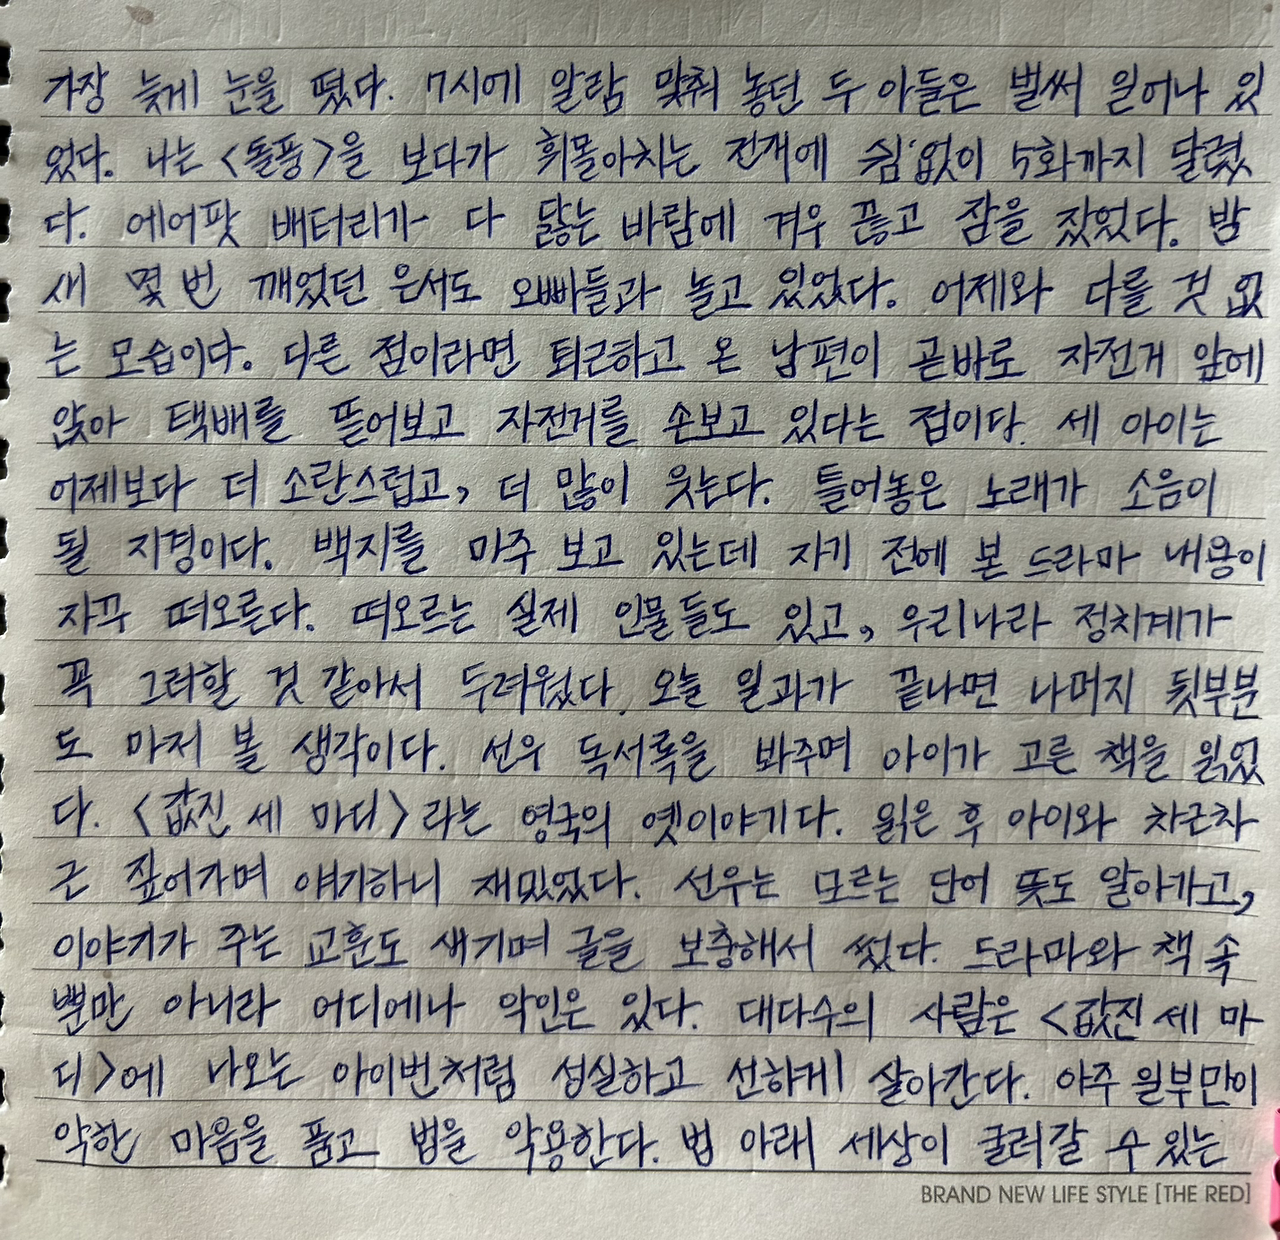 가장 늦게 눈을 떴다. 7시에 알람 맞춰 놓던 두 아들은 벌써 일어나 있
었다. 나는 <돌풍>을 보다가 휘몰아치는 전개에 쉼없이 5화까지 달렸
다. 에어팟 배터리가 다 닳는 바람에 겨우 끊고 잠을 잤었다. 밤
새 몇 번 깨었던 은서도 오빠들과 놀고 있었다. 어제와 다를 것 없
는 모습이다. 다른 점이라면 퇴근하고 온 남편이 곧바로 자전거 앞에
앉아 택배를 뜯어보고 자전거를 손보고 있다는 점이다. 세 아이는
어제보다 더 소란스럽고, 더 많이 웃는다. 틀어놓은 노래가 소음이
될 지경이다. 백지를 마주 보고 있는데 자기 전에 본 드라마 내용이
자꾸 떠오른다. 떠오르는 실제 인물들도 있고, 우리나라 정치계가
꼭 그러할 것 같아서 두려웠다. 오늘 일과가 끝나면 나머지 뒷부분
도 마저 볼 생각이다. 선우 독서록을 봐주며 아이가 고른 책을 읽었
다. <값진 세 마디>라는 영국의 옛이야기다. 읽은 후 아이와 차근차
근 짚어가며 얘기하니 재밌었다. 선우는 모르는 단어 뜻도 알아가고,
이야기가 주는 교훈도 새기며 글을 보충해서 썼다. 드라마와 책 속
뿐만 아니라 어디에나 악인은 있다. 대다수의 사람은 <값진 세 마
디>에 나오는 아이번처럼 성실하고 선하게 살아간다. 아주 일부만이
악한 마음을 품고 법을 악용한다. 법 아래 세상이 굴러갈 수 있는
BRAND NEW LIFE STYLE [THE RED]